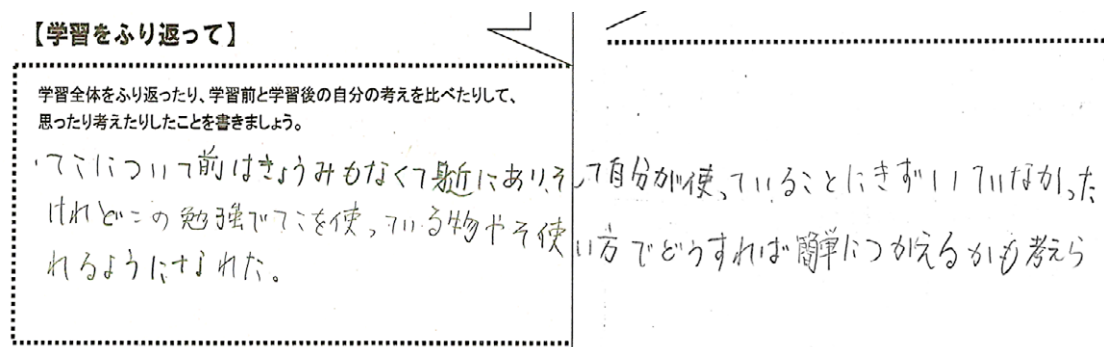 【学習をふり返って】
学習全体をふり返ったり、学習前と学習後の自分の考えを比べたりして、
思ったり考えたりしたことを書きましょう。
・てこについて前はきょうみもなくて身近にあり、そして自分が使っていることにきずいていなかった
けれどこの勉強でてこを使っている物やそ使い方でどうすれば簡単につかえるかも考えら
れるようになれた。